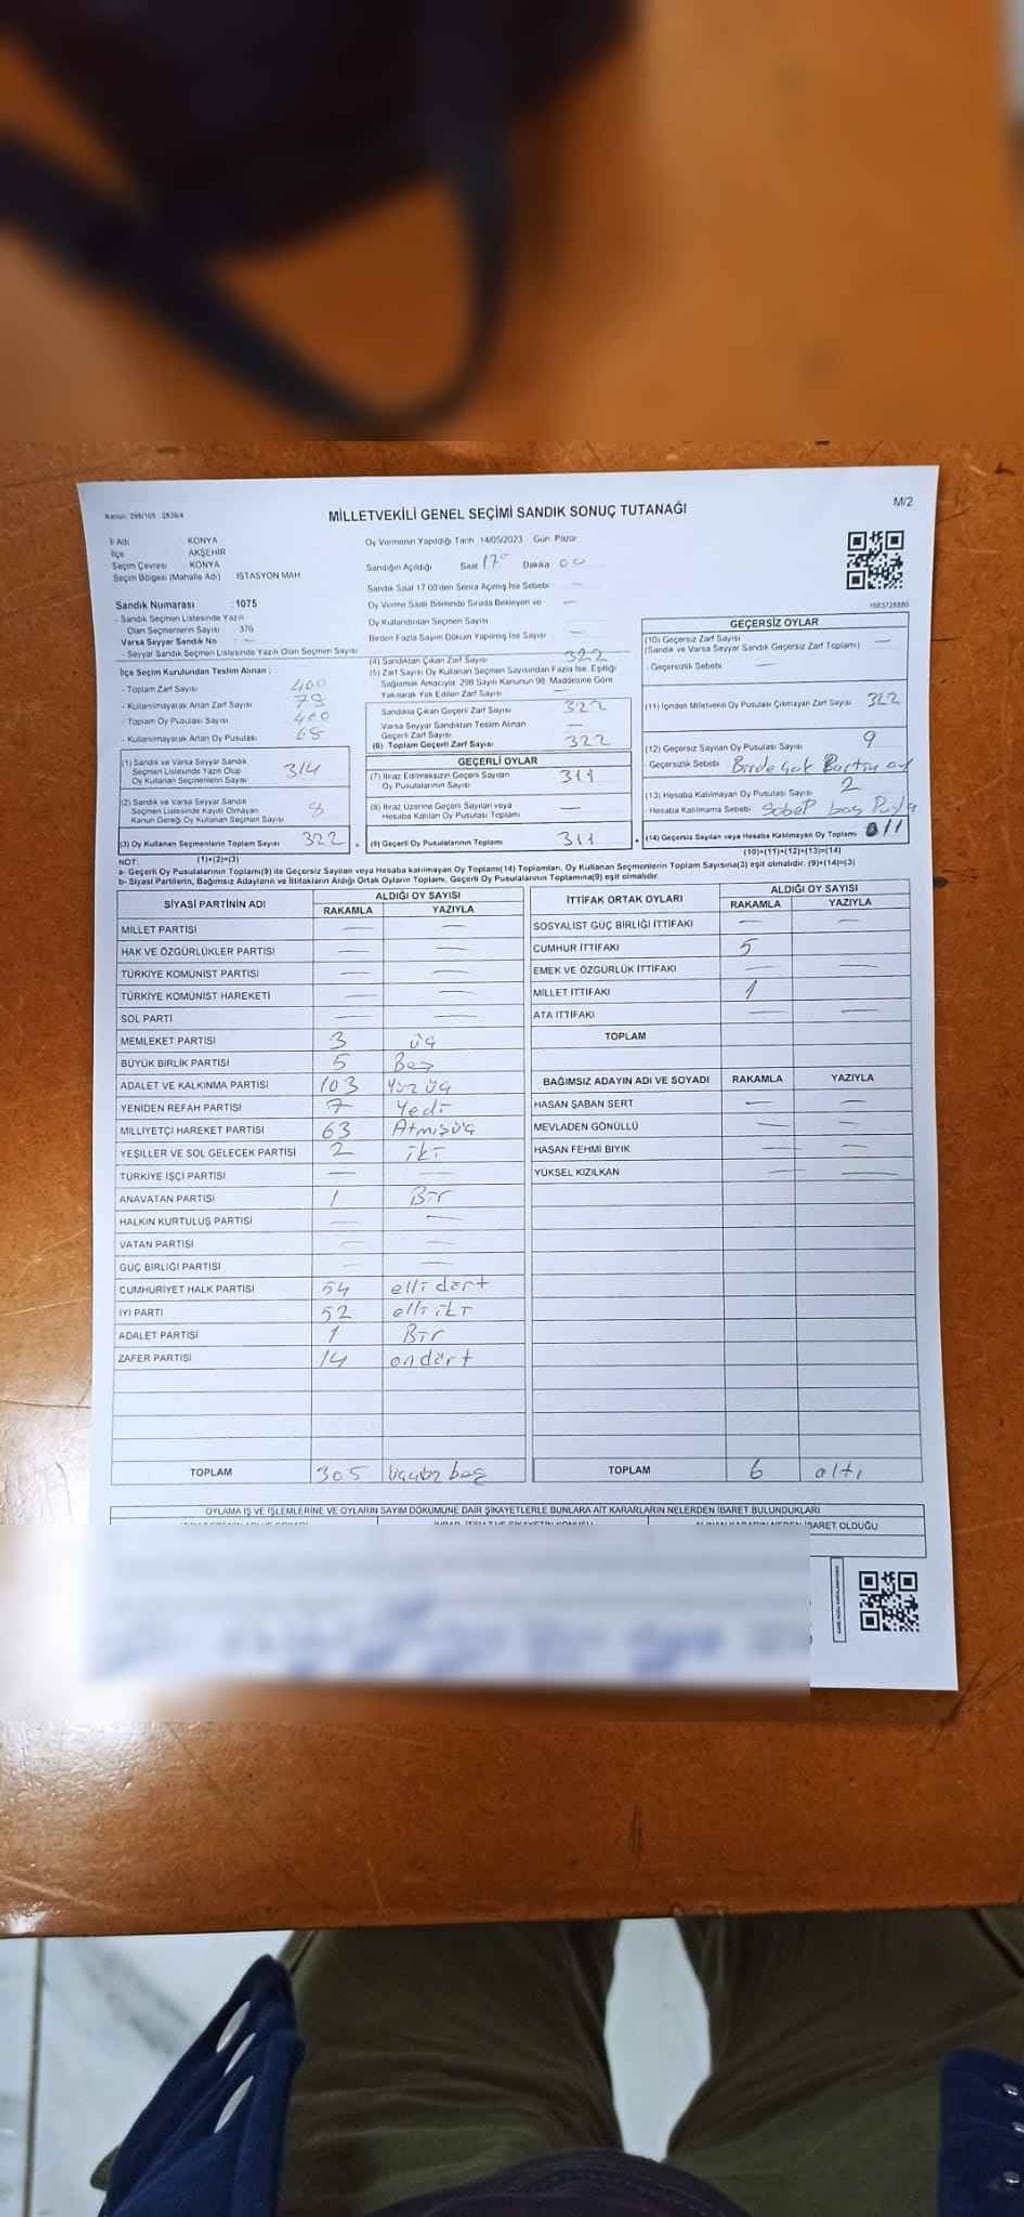 MİLLETVEKİLİ GENEL SEÇİMİ SANDIK SONUÇ TUTANAĞI
M/2
İl Adı KONYA
İlçe AKŞEHİR
Seçim Çevresi KONYA
Seçim Bölgesi (Mahalle Adı) İSTASYON MAH
Sandık Numarası : 1075
- Sandık Seçmen Listesinde Yazılı
Olan Seçmenlerin Sayısı 376
Varsa Seyyar Sandık No
- Seyyar Sandık Seçmen Listesinde Yazılı Olan Seçmen Sayısı
Oy Vermenin Yapıldığı Tarih 14/05/2023 Gün: Pazar
Sandığın Açıldığı Saat 17 Dakika 00
Sandık Saat 17:00'den Sonra Açılmış İse Sebebi —
Oy Verme Saati Bitiminde Sırada Bekleyen ve —
Oy Kullandırılan Seçmen Sayısı
Birden Fazla Sayım Döküm Yapılmış İse Sayısı —
İlçe Seçim Kurulundan Teslim Alınan :
- Toplam Zarf Sayısı 400
- Kullanılmayarak Artan Zarf Sayısı
- Toplam Oy Pusulası Sayısı 400
- Kullanılmayarak Artan Oy Pusulası
(1) Sandık ve Varsa Seyyar Sandık
Seçmen Listesinde Yazılı Olup
Oy Kullanan Seçmenlerin Sayısı 314
(2) Sandık ve Varsa Seyyar Sandık
Seçmen Listesinde Kayıtlı Olmayan
Kanun Gereği Oy Kullanan Seçmen Sayısı 8
(3) Oy Kullanan Seçmenlerin Toplam Sayısı 322
(1)+(2)=(3)
(4) Sandıktan Çıkan Zarf Sayısı 322
(5) Zarf Sayısı Oy Kullanan Seçmen Sayısından Fazla İse, Eşitliği
Sağlamak Amacıyla 298 Sayılı Kanunun 98. Maddesine Göre
Yakılarak Yok Edilen Zarf Sayısı —
Sandıkta Çıkan Geçerli Zarf Sayısı 322
Varsa Seyyar Sandıktan Teslim Alınan
Geçerli Zarf Sayısı —
(6) Toplam Geçerli Zarf Sayısı 322
GEÇERLİ OYLAR
(7) İtiraz Edilmeksizin Geçerli Sayılan
Oy Pusulalarının Sayısı 311
(8) İtiraz Üzerine Geçerli Sayılan veya
Hesaba Katılan Oy Pusulası Toplamı —
(9) Geçerli Oy Pusulalarının Toplamı 311
GEÇERSİZ OYLAR
(10) Geçersiz Zarf Sayısı
(Sandık ve Varsa Seyyar Sandık Geçersiz Zarf Toplamı) —
- Geçersizlik Sebebi —
(11) İçinden Milletvekili Oy Pusulası Çıkmayan Zarf Sayısı 322
(12) Geçersiz Sayılan Oy Pusulası Sayısı 9
Geçersizlik Sebebi
(13) Hesaba Katılmayan Oy Pusulası Sayısı 2
Hesaba Katılmama Sebebi
(14) Geçersiz Sayılan veya Hesaba Katılmayan Oy Toplamı 011
(10)+(11)+(12)+(13)=(14)
NOT:
a- Geçerli Oy Pusulalarının Toplamı(9) ile Geçersiz Sayılan veya Hesaba katılmayan Oy Toplamı(14) Toplamları, Oy Kullanan Seçmenlerin Toplam Sayısına(3) eşit olmalıdır. (9)+(14)=(3)
b- Siyasi Partilerin, Bağımsız Adayların ve İttifakların Aldığı Ortak Oyların Toplamı, Geçerli Oy Pusulalarının Toplamına(9) eşit olmalıdır.
SİYASİ PARTİNİN ADI ALDIĞI OY SAYISI
RAKAMLA YAZIYLA
MİLLET PARTİSİ — —
HAK VE ÖZGÜRLÜKLER PARTİSİ — —
TÜRKİYE KOMÜNİST PARTİSİ — —
TÜRKİYE KOMÜNİST HAREKETİ — —
SOL PARTİ — —
MEMLEKET PARTİSİ 3 üç
BÜYÜK BİRLİK PARTİSİ 5 Beş
ADALET VE KALKINMA PARTİSİ 103 Yüzüç
YENİDEN REFAH PARTİSİ 7 Yedi
MİLLİYETÇİ HAREKET PARTİSİ 63 Atmışüç
YEŞİLLER VE SOL GELECEK PARTİSİ 2 iki
TÜRKİYE İŞÇİ PARTİSİ — —
ANAVATAN PARTİSİ 1 Bir
HALKIN KURTULUŞ PARTİSİ — —
VATAN PARTİSİ — —
GÜÇ BİRLİĞİ PARTİSİ — —
CUMHURİYET HALK PARTİSİ 54 elli dört
İYİ PARTİ 52 elli iki
ADALET PARTİSİ 1 Bir
ZAFER PARTİSİ 14 ondört
TOPLAM 305 üçyüz beş
İTTİFAK ORTAK OYLARI ALDIĞI OY SAYISI
RAKAMLA YAZIYLA
SOSYALİST GÜÇ BİRLİĞİ İTTİFAKI — —
CUMHUR İTTİFAKI 5
EMEK VE ÖZGÜRLÜK İTTİFAKI — —
MİLLET İTTİFAKI 1
ATA İTTİFAKI — —
TOPLAM
BAĞIMSIZ ADAYIN ADI VE SOYADI RAKAMLA YAZIYLA
HASAN ŞABAN SERT — —
MEVLADEN GÖNÜLLÜ — —
HASAN FEHMİ BIYIK — —
YÜKSEL KIZILKAN — —
TOPLAM 6 altı
OYLAMA İŞ VE İŞLEMLERİNE VE OYLARIN SAYIM DÖKÜMÜNE DAİR ŞİKAYETLERLE BUNLARA AİT KARARLARIN NELERDEN İBARET BULUNDUKLARI
İBARET OLDUĞU